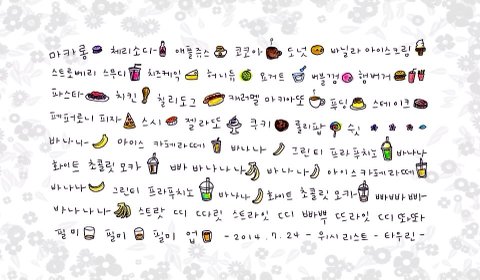 마카롱 체리소다- 애플쥬스 코코아 도넛 바닐라 아이스크림
스트로베리 스무디 치즈케익 허니듀 요거트 버블껌 햄버거
파스타- 치킨 칠리도그 캐러멜 마키아또 푸딩 스테이크
페퍼로니 피자 스시 젤라또 쿠키 롤리팝 숏
바나나- 아이스 카페라떼 바나나- 그린티 프라푸치노 바나나
화이트 초콜릿 모카 빠 바나나나나 바나나나 아이스카페라떼
바나나나 그린티 프라푸치노 바나나 화이트 초콜릿 모카- 빠빠빠빠-
바나나나나- 스트랏 띠 따릿 스트라잇 띠 빠뿌 뜨라잇 띠 또따
필 미 필미 필미 업 - 2014. 7. 24 - 위시리스트 - 타우린 -